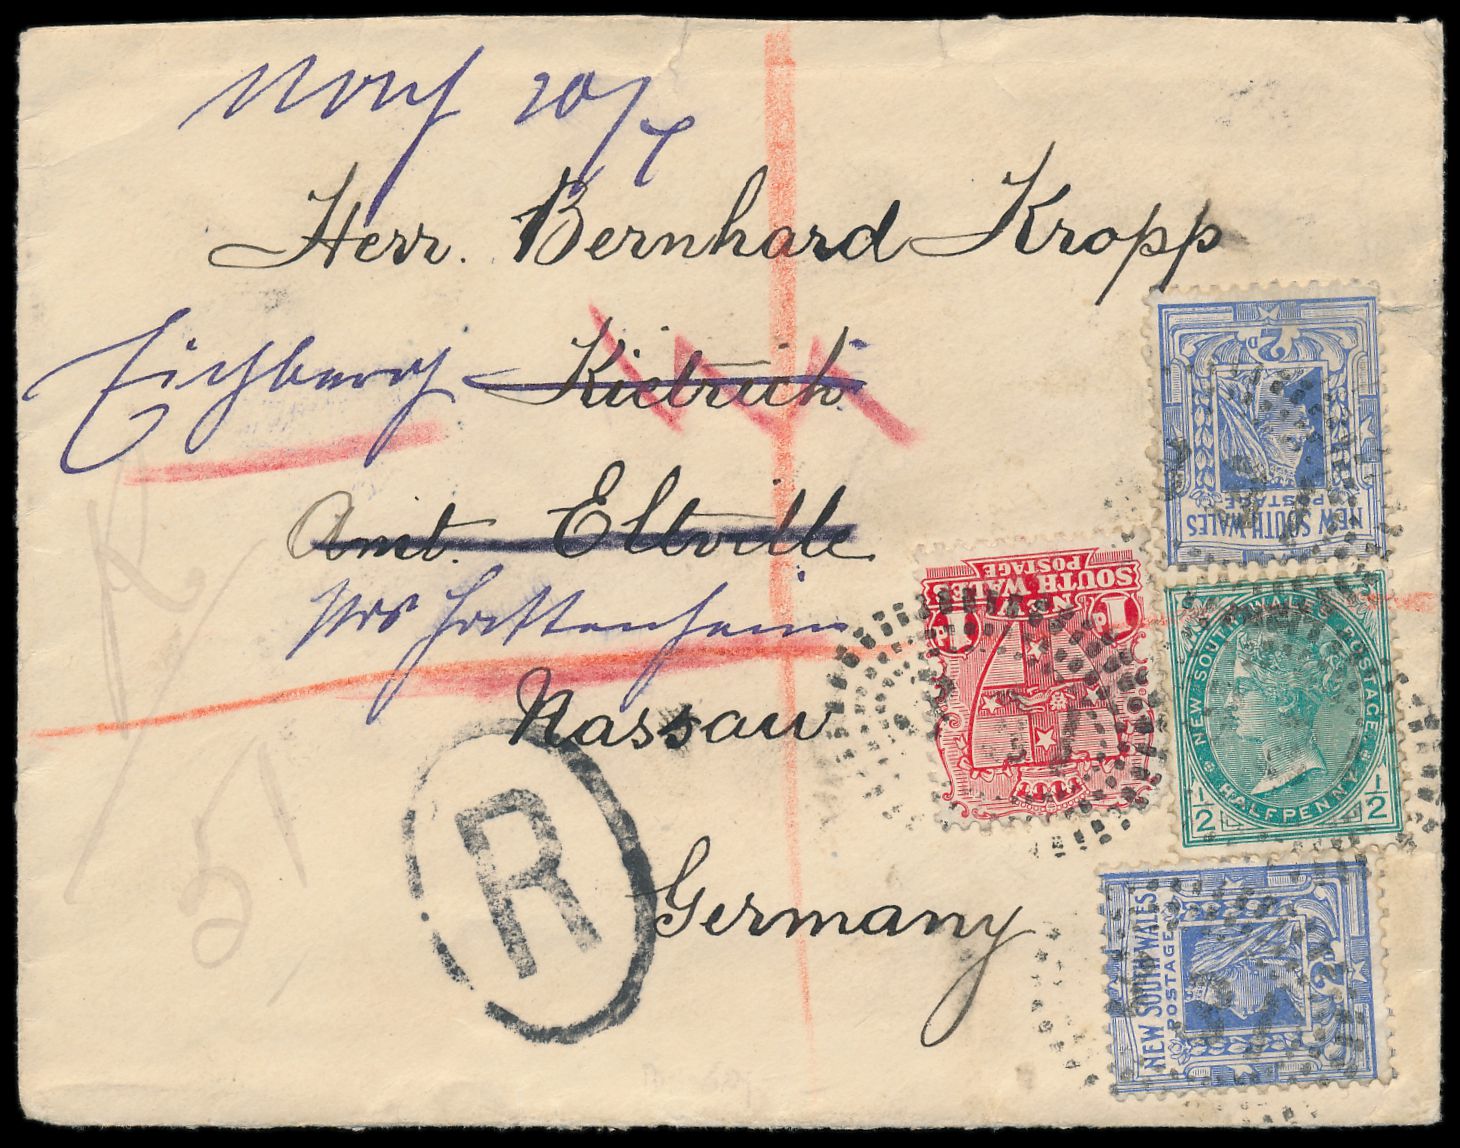 20/4
Herr. Bernhard Kropp
Eichberg Kiedrich
Amt. Eltville
Hattenheim
Nassau
Germany
R
2D
NEW SOUTH WALES
POSTAGE
NEW
SOUTH WALES
POSTAGE
1D 1D
NEW SOUTH WALES POSTAGE
HALFPENNY
1/2 1/2
NEW SOUTH WALES
POSTAGE
2D